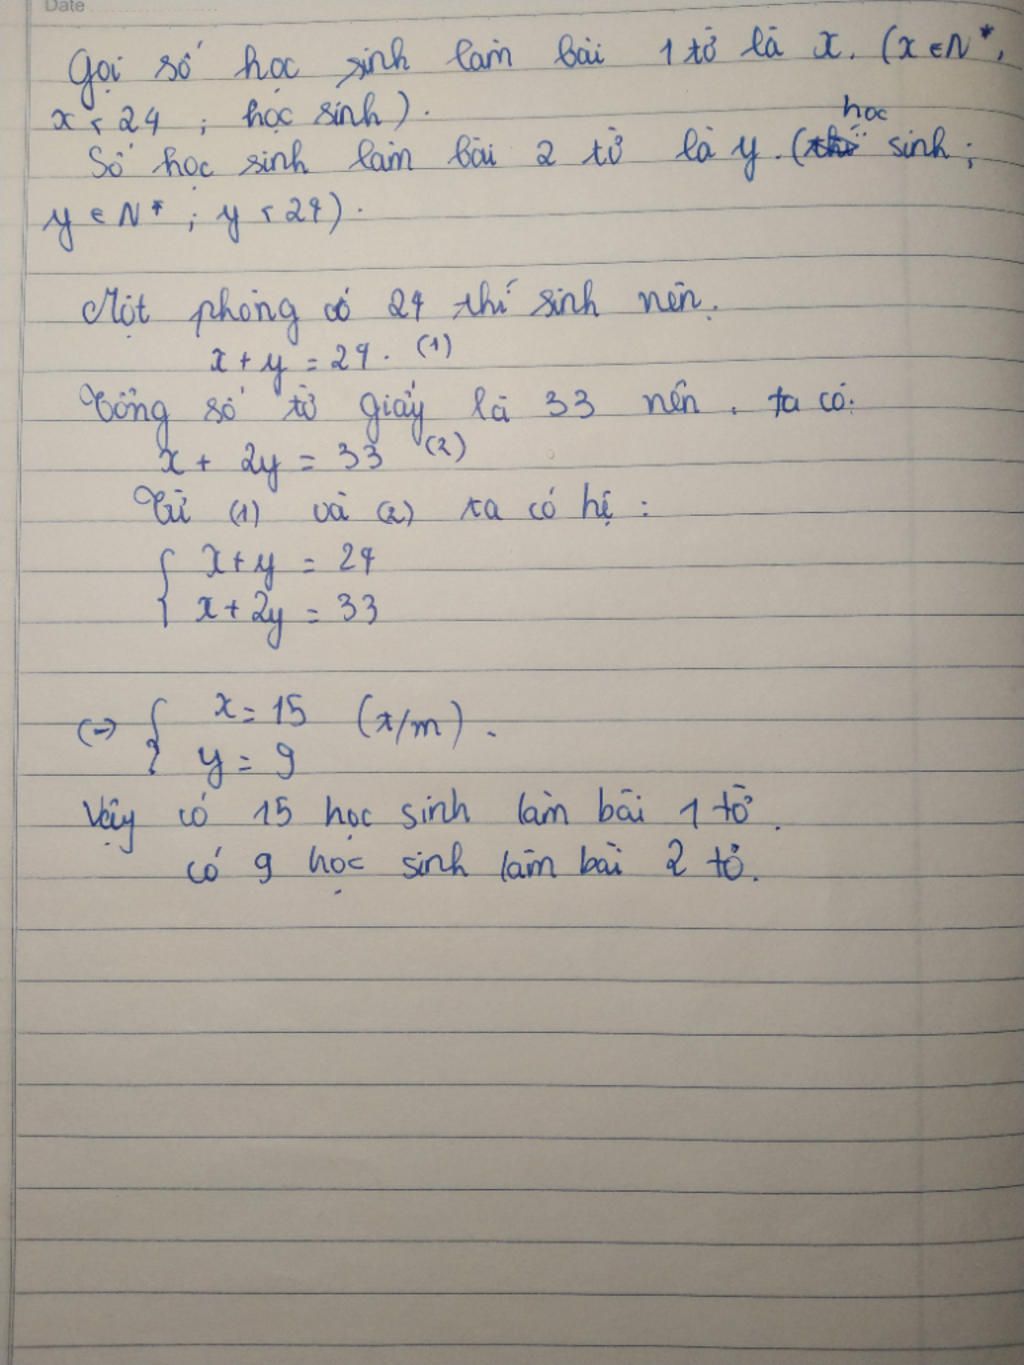 Date
Gọi số học sinh làm bài 1 tờ là x. (x ∈ N*,
x < 24 ; học sinh).
học
Số học sinh làm bài 2 tờ là y. (sinh ;
y ∈ N* ; y < 24).
Một phòng có 24 thí sinh nên.
x + y = 24. (1)
Tổng số tờ giấy là 33 nên. ta có:
x + 2y = 33 (2)
Từ (1) và (2) ta có hệ :
{ x + y = 24
x + 2y = 33
(=) { x = 15 (t/m).
y = 9
Vậy có 15 học sinh làm bài 1 tờ.
có 9 học sinh làm bài 2 tờ.